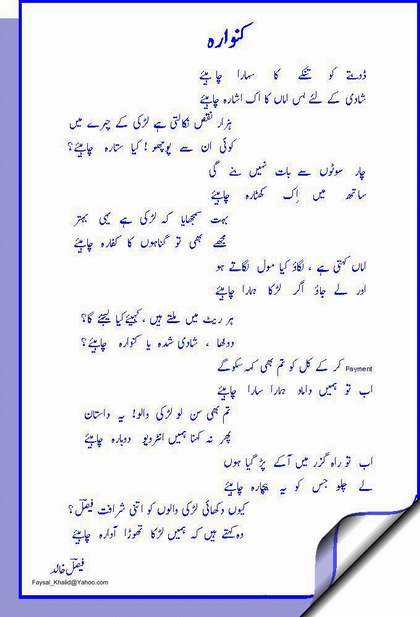 کنوارہ
ڈوبتے کو تنکے کا سہارا چاہیئے
شادی کے لئے بس اماں کا اک اشارہ چاہیئے
ہزار نقص نکالتی ہے لڑکی کے چہرے میں
کوئی ان سے پوچھو! کیا ستارہ چاہیئے؟
چار سوٹوں سے بات نہیں بنے گی
ساتھ میں اِک کھٹارہ چاہیئے
بہت سمجھایا کہ لڑکی ہے یہی بہتر
مجھے بھی تو گناہوں کا کفارہ چاہیئے
اماں کہتی ہے ، لگاؤ کیا مول لگاتے ہو
اور لے جاؤ اگر لڑکا ہمارا چاہیئے
ہر ریٹ میں ملتے ہیں ، کہیئے کیا لیجئے گا؟
دولھا ، شادی شدہ یا کنوارہ چاہیئے؟
Payment کر کے کل کو تم بھی کہہ سکو گے
اب تو ہمیں داماد ہمارا سارا چاہیئے
تم بھی سن لو لڑکی والو! یہ داستان
پھر نہ کہنا ہمیں انٹرویو دوبارہ چاہیئے
اب تو راہ گزر میں آکے پڑ گیا ہوں
لے چلو جس کو یہ بیچارہ چاہیئے
کیوں دکھائی لڑکی والوں کو اتنی شرافت فیصلؔ؟
وہ کہتے ہیں کہ ہمیں لڑکا تھوڑا آوارہ چاہیئے
فیصلؔ خالد
Faysal_Khalid@Yahoo.com